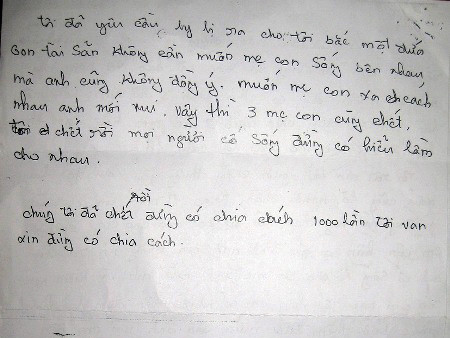 tôi đả yêu cầu ly hị ra cho tôi bắc một đứa
con tài sản không cần muốn mẹ con sống bên nhau
mà anh cũng không đồng ý. muốn mẹ con xa cách
nhau anh mới vui. vậy thì 3 mẹ con cùng chết.
chết rồi mọi người cố sống đừng có hiểu lầm
cho nhau.
rồi
chúng tôi đả chết đừng có chia cách 1000 lần tôi van
xin đừng có chia cách.